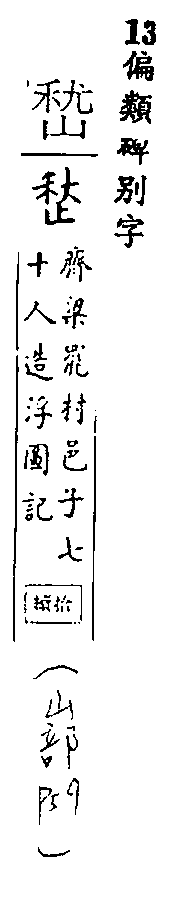 13偏類碑別字
嵇
齊梁罷村邑子七
十人造浮圖記
(山部P59)